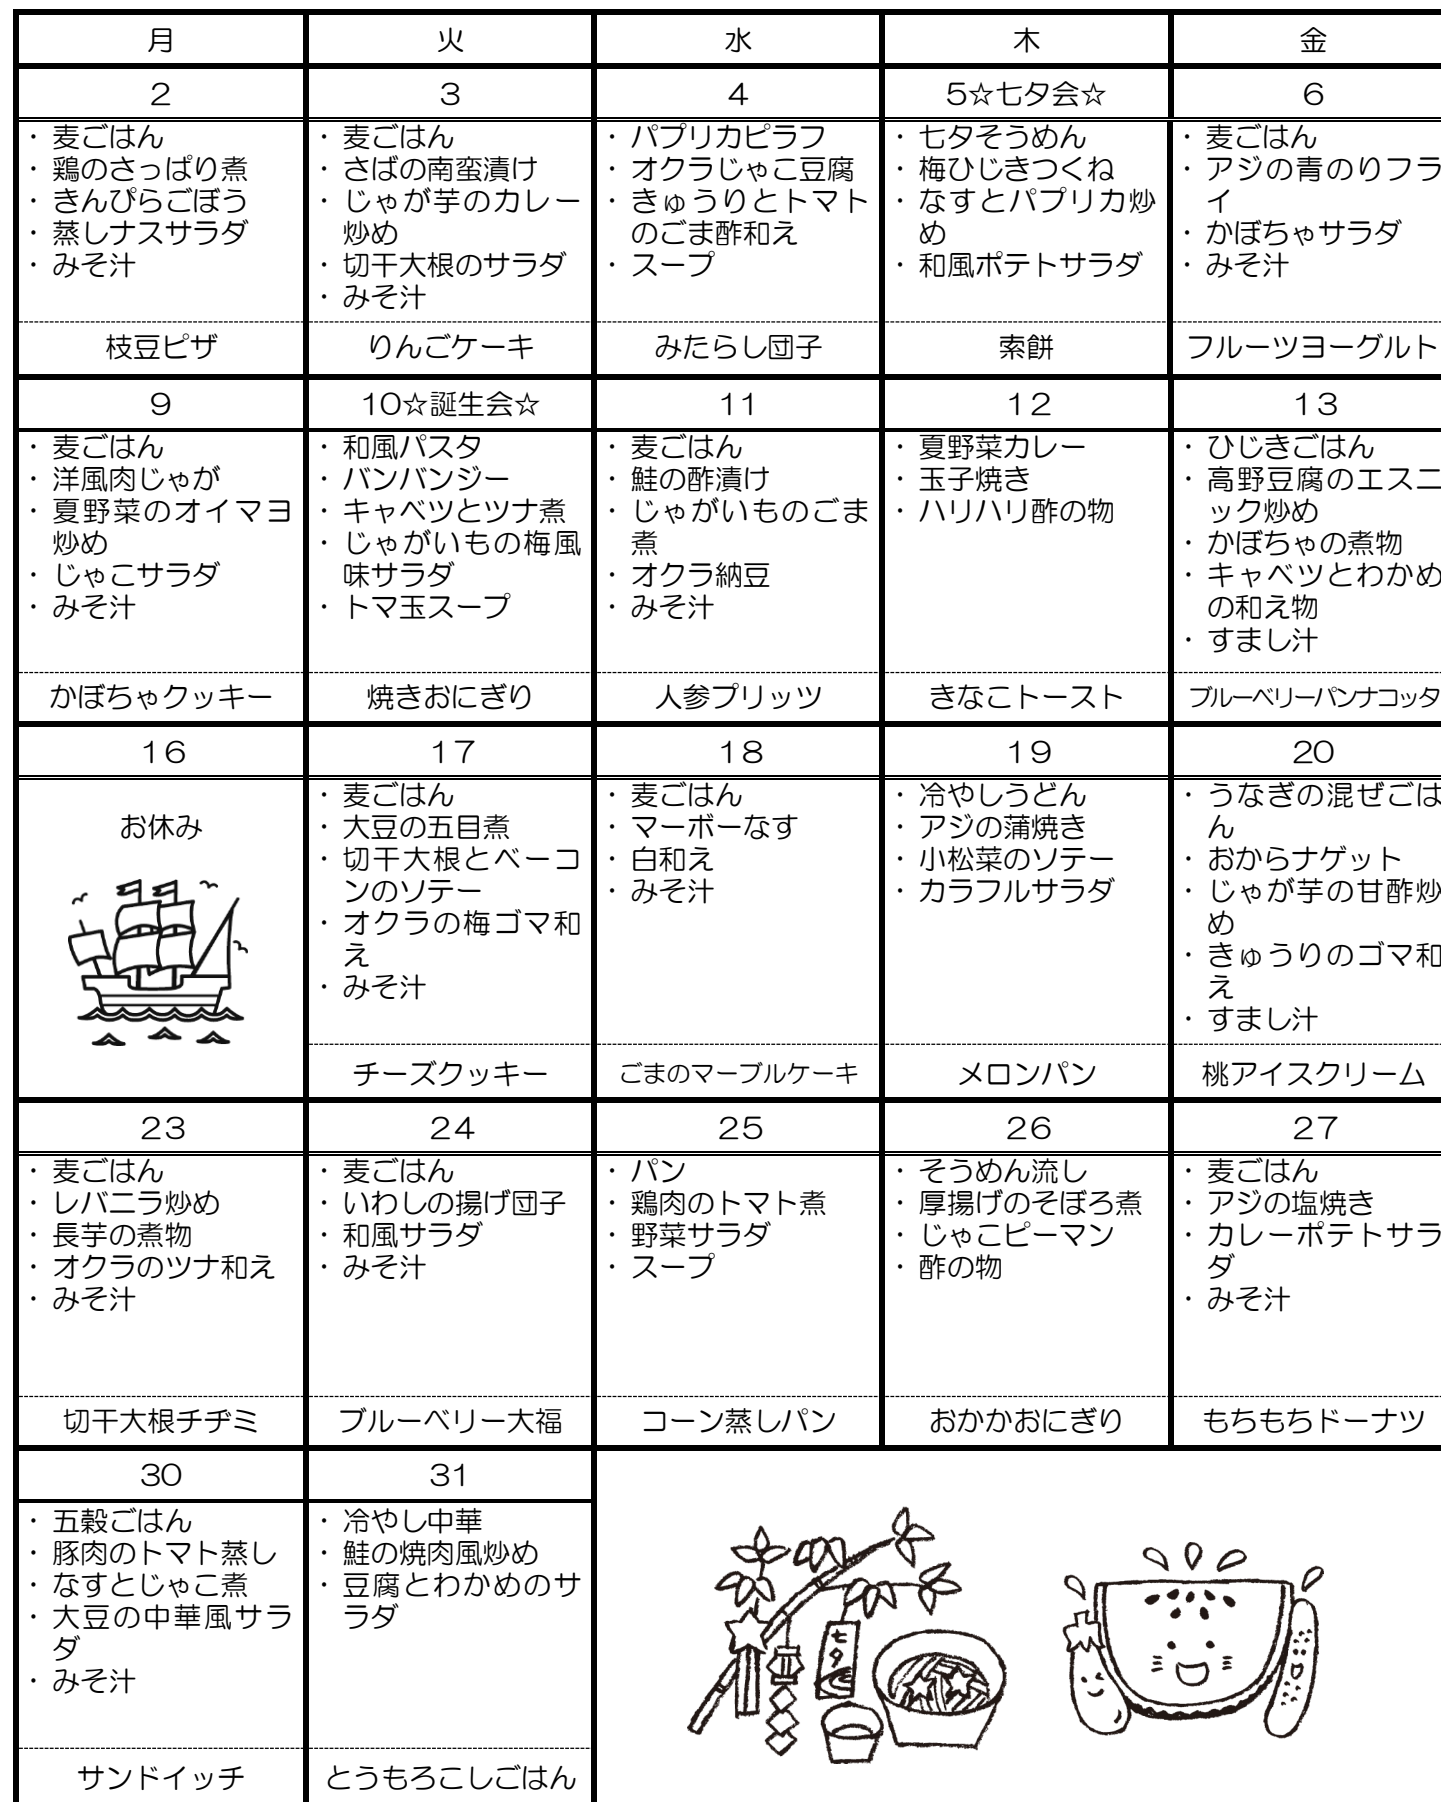 月
火
水
木
金
2
3
4
5☆七夕会☆
6
・麦ごはん
・鶏のさっぱり煮
・きんぴらごぼう
・蒸しナスサラダ
・みそ汁
・麦ごはん
・さばの南蛮漬け
・じゃが芋のカレー
炒め
・切干大根のサラダ
・みそ汁
・パプリカピラフ
・オクラじゃこ豆腐
・きゅうりとトマト
のごま酢和え
・スープ
・七夕そうめん
・梅ひじきつくね
・なすとパプリカ炒
め
・和風ポテトサラダ
・麦ごはん
・アジの青のりフラ
イ
・かぼちゃサラダ
・みそ汁
枝豆ピザ
りんごケーキ
みたらし団子
索餅
フルーツヨーグルト
9
10☆誕生会☆
11
12
13
・麦ごはん
・洋風肉じゃが
・夏野菜のオイマヨ
炒め
・じゃこサラダ
・みそ汁
・和風パスタ
・バンバンジー
・キャベツとツナ煮
・じゃがいもの梅風
味サラダ
・トマ玉スープ
・麦ごはん
・鮭の酢漬け
・じゃがいものごま
煮
・オクラ納豆
・みそ汁
・夏野菜カレー
・玉子焼き
・ハリハリ酢の物
・ひじきごはん
・高野豆腐のエスニ
ック炒め
・かぼちゃの煮物
・キャベツとわかめ
の和え物
・すまし汁
かぼちゃクッキー
焼きおにぎり
人参プリッツ
きなこトースト
ブルーベリーパンナコッタ
16
17
18
19
20
お休み
・麦ごはん
・大豆の五目煮
・切干大根とベーコ
ンのソテー
・オクラの梅ゴマ和
え
・みそ汁
・麦ごはん
・マーボーなす
・白和え
・みそ汁
・冷やしうどん
・アジの蒲焼き
・小松菜のソテー
・カラフルサラダ
・うなぎの混ぜごは
ん
・おからナゲット
・じゃが芋の甘酢炒
め
・きゅうりのゴマ和
え
・すまし汁
チーズクッキー
ごまのマーブルケーキ
メロンパン
桃アイスクリーム
23
24
25
26
27
・麦ごはん
・レバニラ炒め
・長芋の煮物
・オクラのツナ和え
・みそ汁
・麦ごはん
・いわしの揚げ団子
・和風サラダ
・みそ汁
・パン
・鶏肉のトマト煮
・野菜サラダ
・スープ
・そうめん流し
・厚揚げのそぼろ煮
・じゃこピーマン
・酢の物
・麦ごはん
・アジの塩焼き
・カレーポテトサラ
ダ
・みそ汁
切干大根チヂミ
ブルーベリー大福
コーン蒸しパン
おかかおにぎり
もちもちドーナツ
30
31
・五穀ごはん
・豚肉のトマト蒸し
・なすとじゃこ煮
・大豆の中華風サラ
ダ
・みそ汁
・冷やし中華
・鮭の焼肉風炒め
・豆腐とわかめのサ
ラダ
七夕
サンドイッチ
とうもろこしごはん